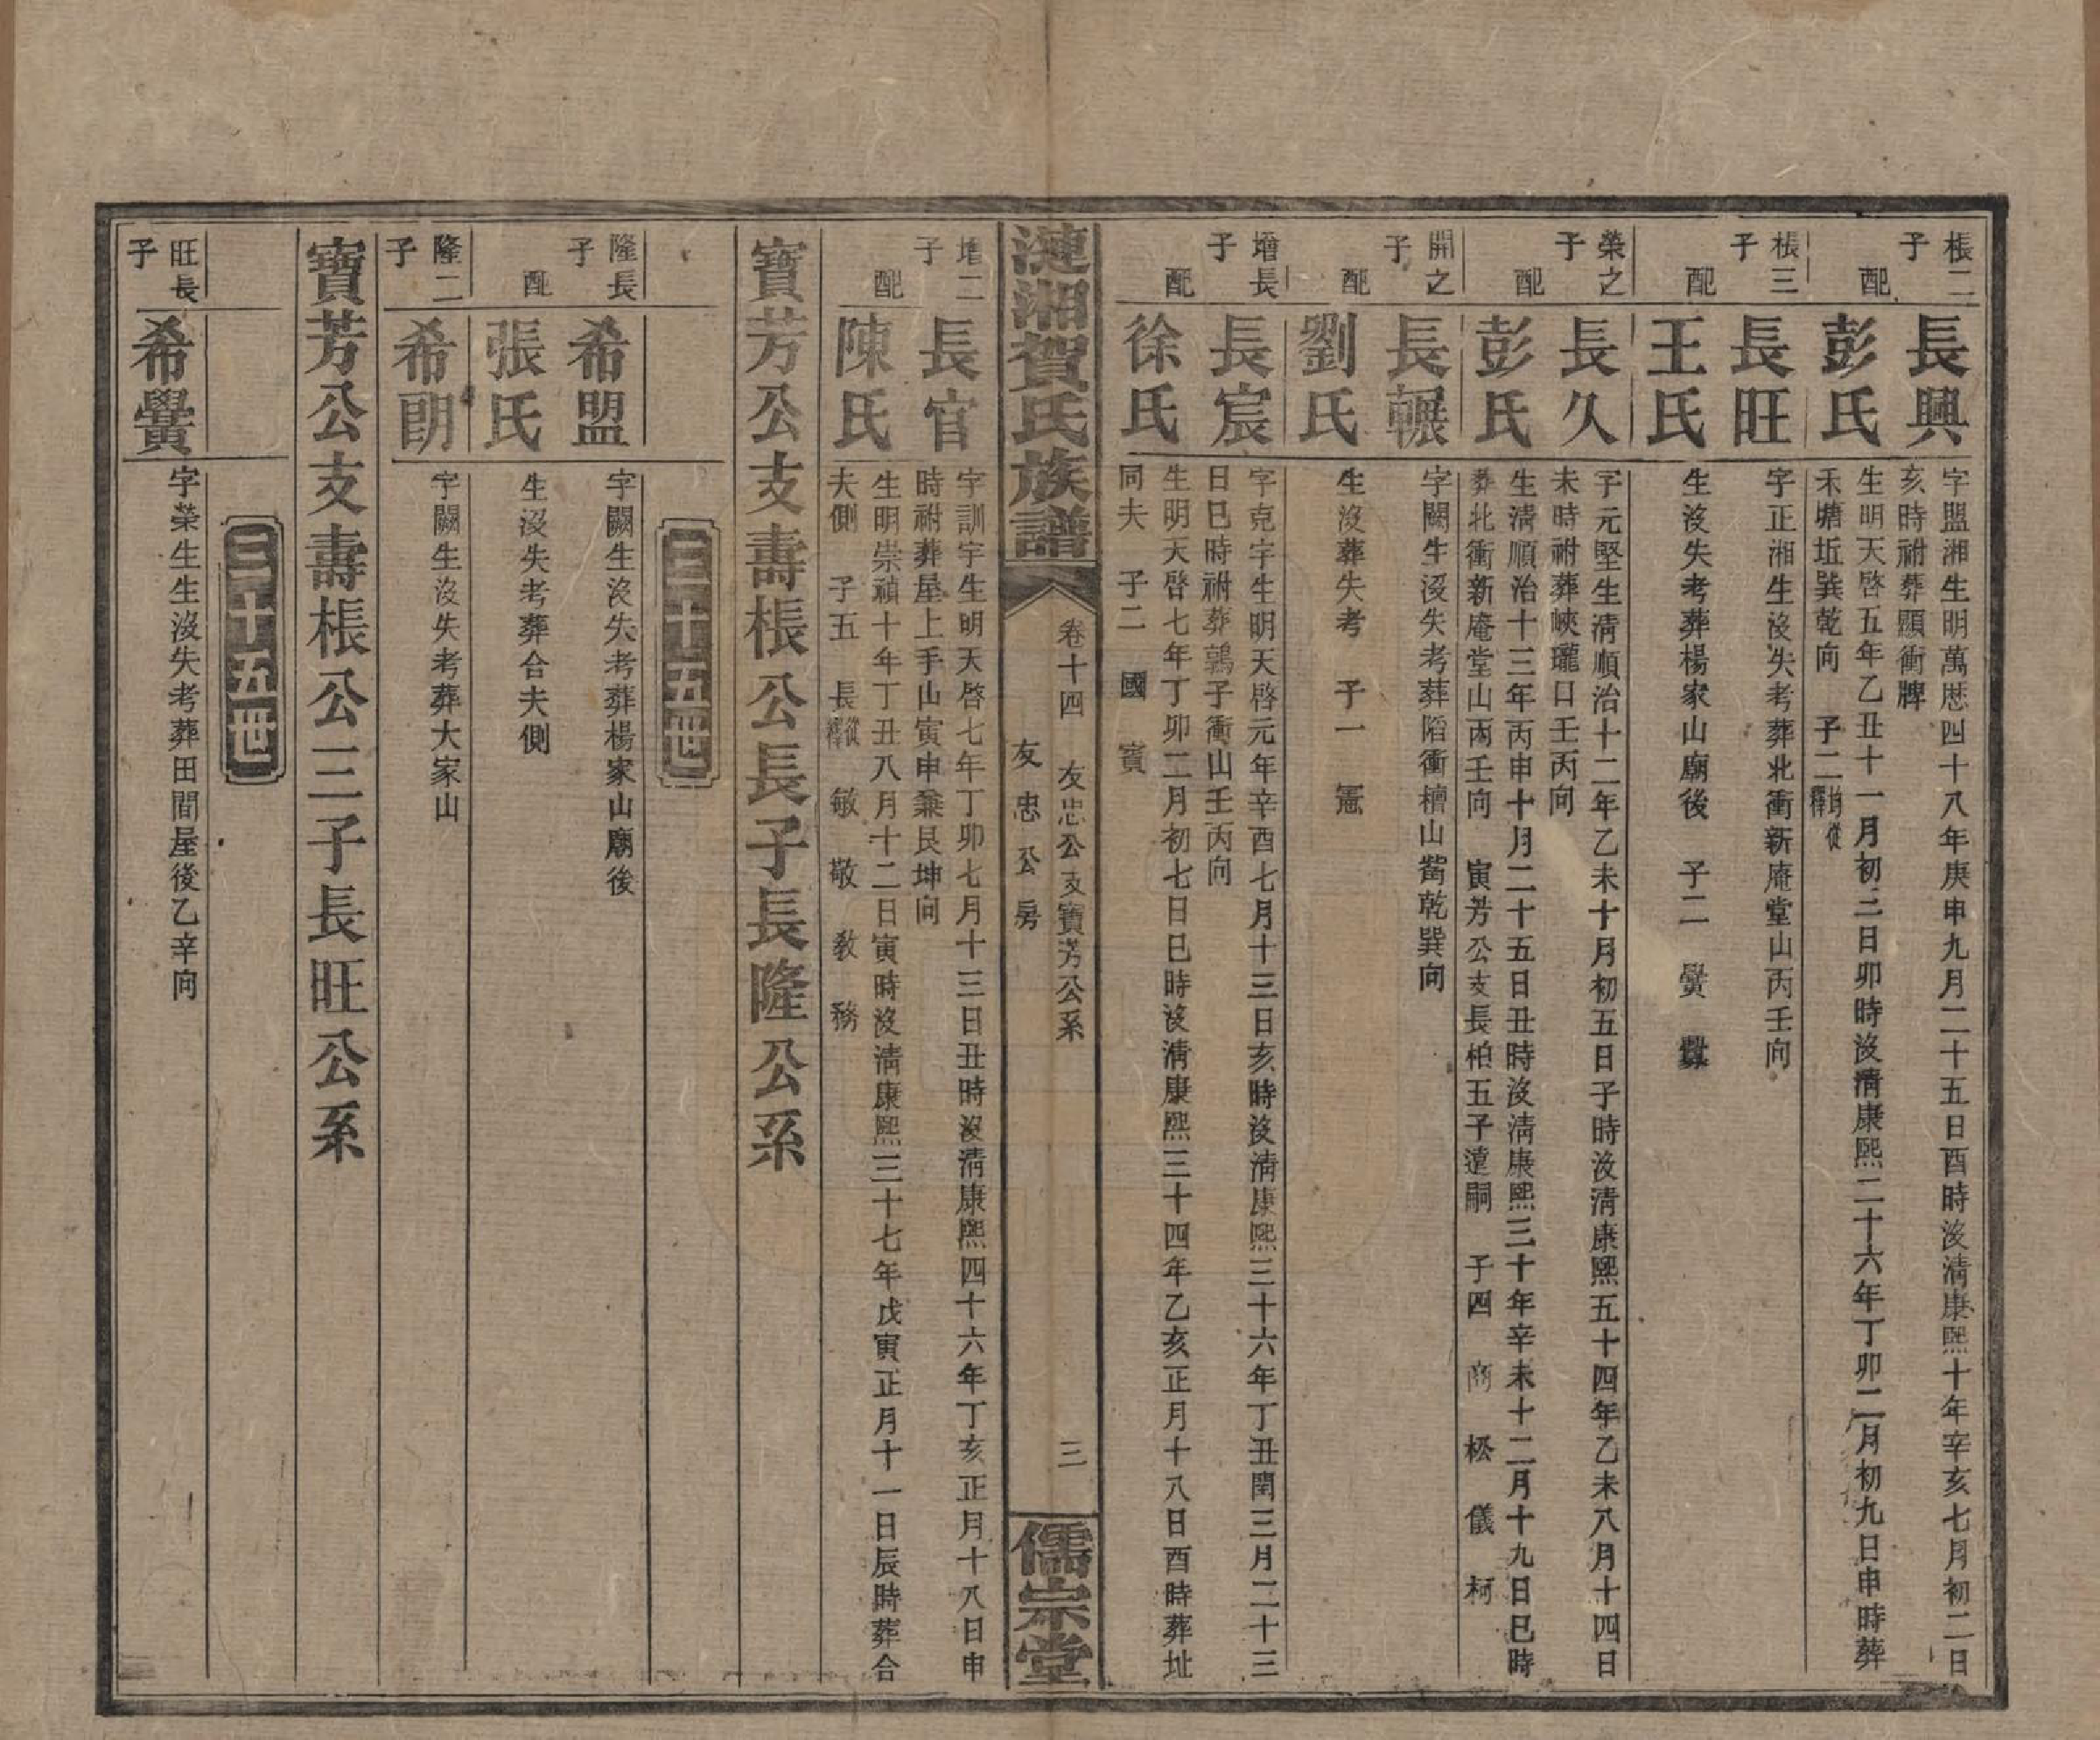 棖二子
長興
字盟湘生明萬歷四十八年庚申九月二十五日酉時沒清康熙十年辛亥七月初二日
亥時祔葬顯衝牌
配
彭氏
生明天啓五年乙丑十一月初三日卯時沒清康熙二十六年丁卯二月初九日申時葬
禾塘坵巽乾向 子二
棖三子
長旺
字正湘生沒失考葬北衝新庵堂山丙壬向
配
王氏
生沒失考葬楊家山廟後 子二 黌
榮之子
長久
字元堅生清順治十二年乙未十月初五日子時沒清康熙五十四年乙未八月十四日
未時祔葬峽瓏口壬丙向
配
彭氏
生清順治十三年丙申十月二十五日丑時沒清康熙三十年辛未十二月十九日巳時
葬北衝新庵堂山丙壬向 寅芳公支長柏五子遠嗣 子四 商 松 儀 柯
開之子
長輾
字闕生沒失考葬陷衝檀山觜乾巽向
配
劉氏
生沒葬失考 子一 憲
增長子
長宸
字克宇生明天啓元年辛酉七月十三日亥時沒清康熙三十六年丁丑閏三月二十三
日巳時祔葬鷄子衝山壬丙向
配
徐氏
生明天啓七年丁卯二月初七日巳時沒清康熙三十四年乙亥正月十八日酉時葬址
同夫 子二 國 賓
漣湘賀氏族譜
卷十四 友忠公支寶芳公系 三
友忠公房
儒宗堂
增二子
長官
字訓宇生明天啓七年丁卯七月十三日丑時沒清康熙四十六年丁亥正月十八日申
時祔葬屋上手山寅申兼艮坤向
配
陳氏
生明崇禎十年丁丑八月十二日寅時沒清康熙三十七年戊寅正月十一日辰時葬合
夫側 子五 長 敏 敬 教 務
寶芳公支壽棖公長子長隆公系
三十五世
隆長子
希盟
字闕生沒失考葬楊家山廟後
配
張氏
生沒失考葬合夫側
隆二子
希朗
字闕生沒失考葬大家山
寶芳公支壽棖公三子長旺公系
三十五世
旺長子
希黌
字榮生生沒失考葬田間屋後乙辛向